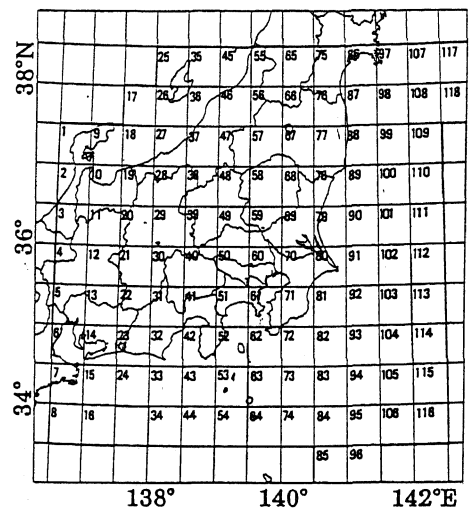 38°N
25 35 45 55 65 75 86 97 107 117
17 26 36 46 56 66 76 87 98 108 118
1 9 18 27 37 47 57 67 77 88 99 109
2 10 19 28 38 48 58 68 78 89 100 110
3 11 20 29 39 49 59 69 79 90 101 111
36°
4 12 21 30 40 50 60 70 80 91 102 112
5 13 22 31 41 51 61 71 81 92 103 113
6 14 23 32 42 52 62 72 82 93 104 114
7 15 24 33 43 53 63 73 83 94 105 115
34°
8 16 34 44 54 64 74 84 95 106 116
85 96
138° 140° 142°E